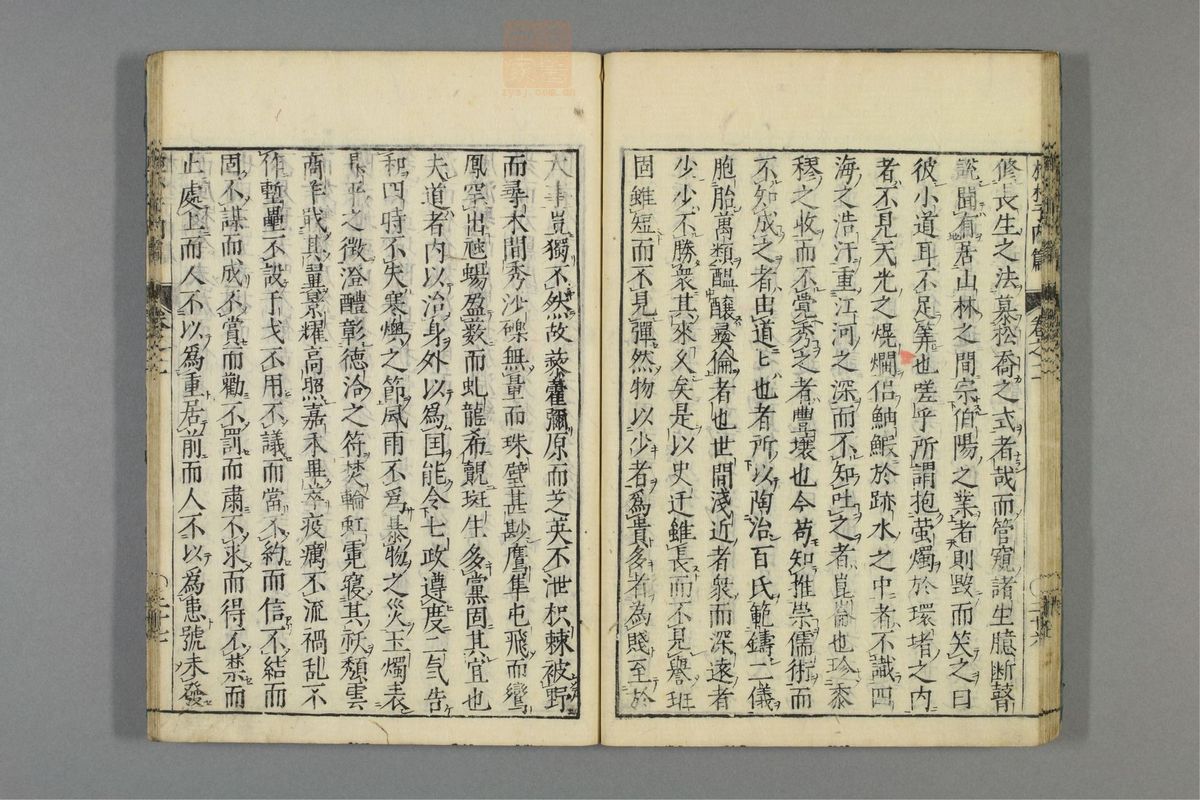 抱朴子内篇　卷之二
脩長生之法慕松喬之武者哉而管窺諸生臆断瞽
說聞有居山林之間宗伯陽之業者則毀而笑之曰
彼小道耳不足筭也嗟乎所謂抱萤燭於環堵之内
者不見天光之焜爛侣鮋鰕於跡水之中者不識四
海之浩汗重江河之深而不知吐之者崑崙也珍黍
稷之收而不覺秀之者豊壤也今苟知推崇儒術而
不知成之者由道〻也者所以陶冶百氏範鑄二儀
胞胎萬類醞釀彛倫者也世間淺近者衆而深遠者
少少不勝衆其來久矣是以史迁雖長而不見譽班
固雖短而不見彈然物以少者為貴多者為賤至於
人事豈獨不然故藜藿彌原而芝英不泄枳棘被野
而尋木間秀沙礫無量而珠璧甚尠鷹隼屯飛而鸞
鳳罕出虺蜴盈薮而虬龍希覿班生多黨固其宜也
夫道者内以治身外以為国能令七政遵度二氣告
和四時不失寒燠之節風雨不為暴物之災玉燭表
昇平之徵澄醴彰德洽之符焚輪虹霓寢其祅頹雲
商羊戢其翼景耀高照嘉禾畢荂疫癘不流禍乱不
作塹壘不設干戈不用不議而當不約而信不結而
固不謀而成不賞而勸不罰而肅不求而得不禁而
止處上而人不以為重居前而人不以為患號未發